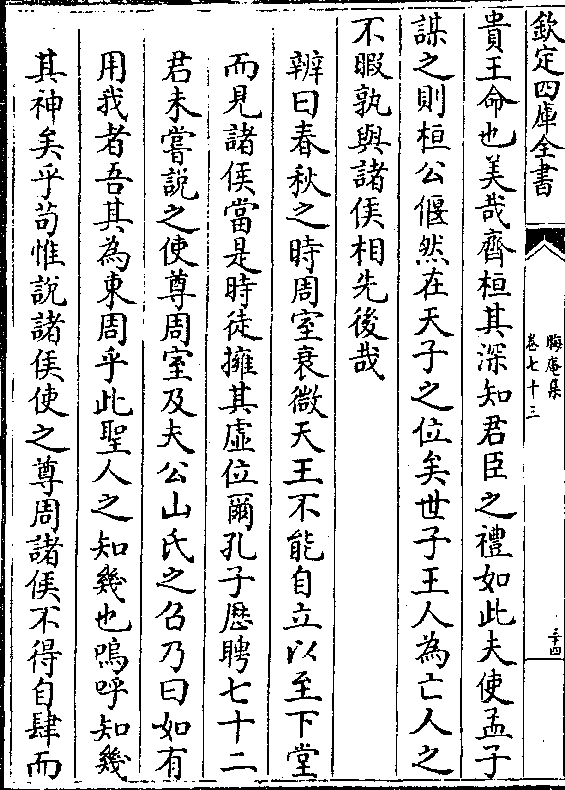 欽定四庫全書
晦庵集
卷七十三
三十四
貴王命也美哉齊桓其深知君臣之禮如此夫使孟子
謀之則桓公偃然在天子之位矣世子王人為亡人之
不暇孰與諸侯相先後哉
辨曰春秋之時周室衰微天王不能自立以至下堂
而見諸侯當是時徒擁其虛位爾孔子歴聘七十二
君未嘗説之使尊周室及夫公山氏之召乃曰如有
用我者吾其為東周乎此聖人之知幾也嗚呼知幾
其神矣乎苟惟說諸侯使之尊周諸侯不得自肆而